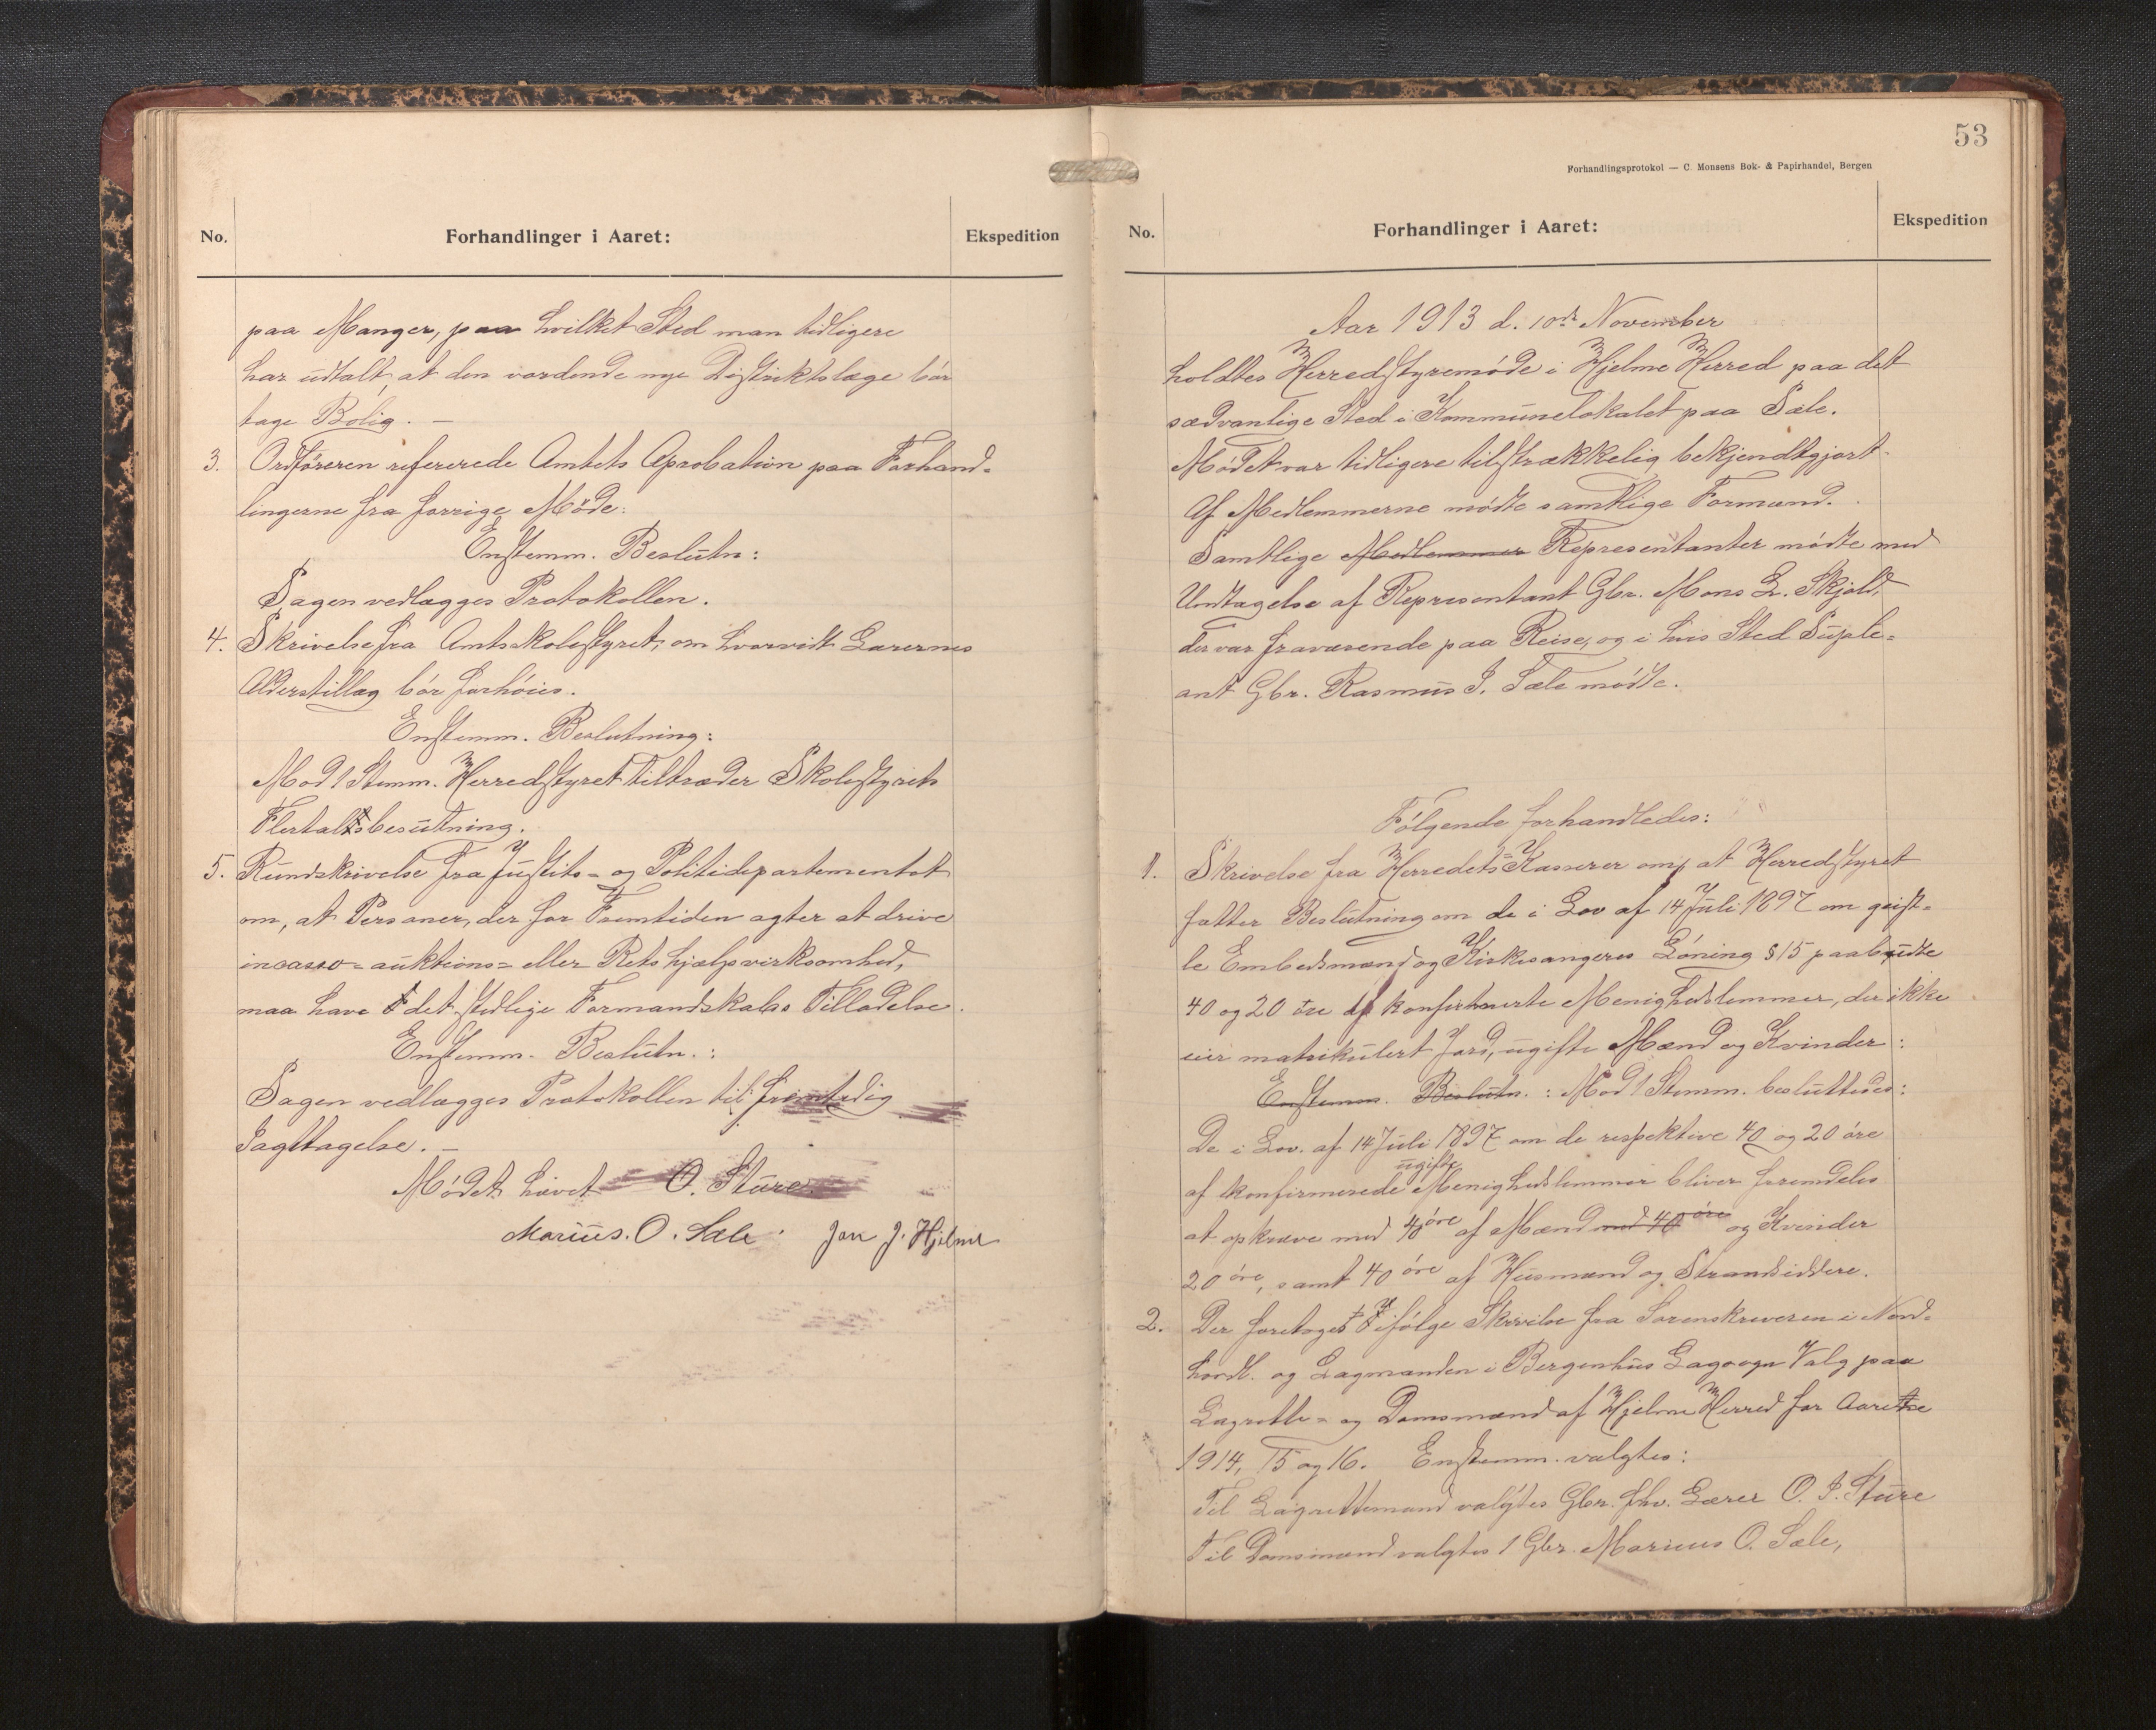 No.
Forhandlinger i Aaret:
Ekspedition
paa Manger, paa hvilket Sted man tidligere
har udtalt, at den vordende nye Distriktslæge bör
tage Bolig. —
3. Ordföreren refererede Amtets Aprobation paa Forhand-
lingerne fra forrige Möde:
Enstemm. Beslutn:
Sagen vedlægges Protokollen.
4. Skrivelse fra Amtsskolestyret, om hvorvidt Lærernes
Alderstillæg bör forhöies.
Enstemm. Beslutning:
Mod 1 Stemm. Herredstyret tiltræder Skolestyrets
Flertalsbesutning.
5. Rundskrivelse fra Justits- og Politidepartementet
om, at Personer, der for Fremtiden agter at drive
incasso- auktions- eller Retshjælpsvirksomhed,
maa have det stedlige Formandskabs Tilladelse.
Enstemm. Beslutn.:
Sagen vedlægges Protokollen til fremtidig
Iagttagelse. —
Mödet hævet O. Sture
Marius. O. Sæle. Jon J. Hjelme
53
Forhandlingsprotokol — C. Monsens Bok- & Papirhandel, Bergen
No.
Forhandlinger i Aaret:
Ekspedition
Aar 1913 d. 10de November
holdtes Herredstyremöde i Hjelme Herred paa det
sædvanlige Sted i Kommunelokalet paa Sæle.
Mödet var tidligere tilstrækkelig bekjendtgjort.
Af Medlemmerne mödte samtlige Formænd.
Samtlige Medlemmer Representanter mödte med
Undtagelse af Representant Gbr. Mons L. Skjold,
der var fraværende paa Reise, og i hvis Sted Suple-
ant Gbr. Rasmus I. Sæle mödte.
Fölgende forhandledes:
1. Skrivelse fra Herredets Kasserer om, at Herredstyret
fatter Beslutning om de i Lov af 14 Juli 1897 om geist-
le Embedsmænd og Kirkesangeres Löning § 15 paabudte
40 og 20 öre af konfirmerte Menighedslemmer, der ikke
eier matrikulert Jord, ugifte Mænd og Kvinder:
Enstemm. Beslutn.: Mod 1 Stemm. besluttedes:
De i Lov. af 14 Juli 1897 om de respektive 40 og 20 öre
af konfirmerede ugifte Menighedslemmer bliver fremdeles
at opkræve med 40 öre af Mænd med 40 öre og Kvinder
20 öre, samt 40 öre af Husmænd og Strandsiddere.
2. Der foretoges ifölge Skrivelse fra Sorenskriveren i Nord-
hordl. og Lagmanden i Bergenhus Lagsogn Valg paa
Lagrette- og Domsmænd af Hjelme Herred for Aarene
1914, 15 og 16. Enstemm. valgtes:
Til Lagrettemænd valgtes Gbr. fhv. Lærer O. I. Sture
Til Domsmænd valgtes 1 Gbr. Marius O. Sæle,